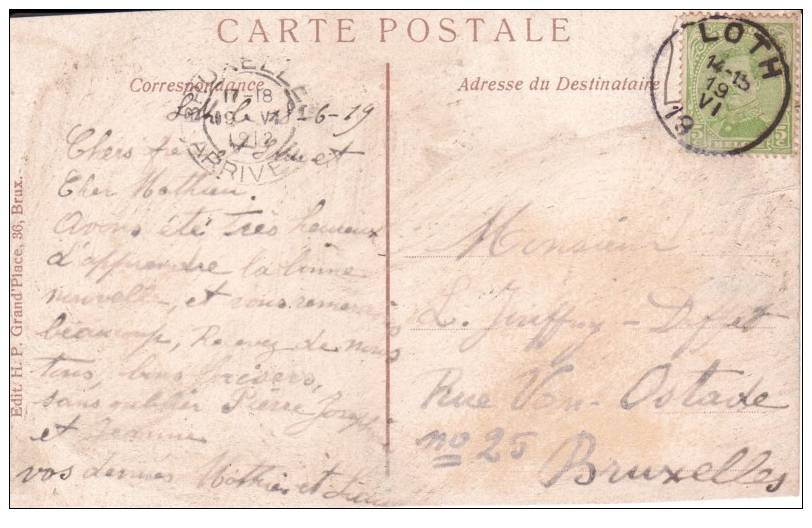 CARTE POSTALE
Correspondance
Adresse du Destinataire
LOTH
14-15
19
VI
19
17-18
19 VI
1912
ARRIVEE
le 18-6-19
Chers
et
Cher Mathieu.
Avons été très heureux
d'apprendre la bonne
nouvelle, et vous remercions
beaucoup, Recevez de nous
tous, bons baisers,
sans oublier Pierre Joseph
et Jeanne
vos Mathieu et
Monsieur
L.
Rue Van-Ostade
no 25
Bruxelles
Edit. H. P. Grand'Place, 36, Brux.